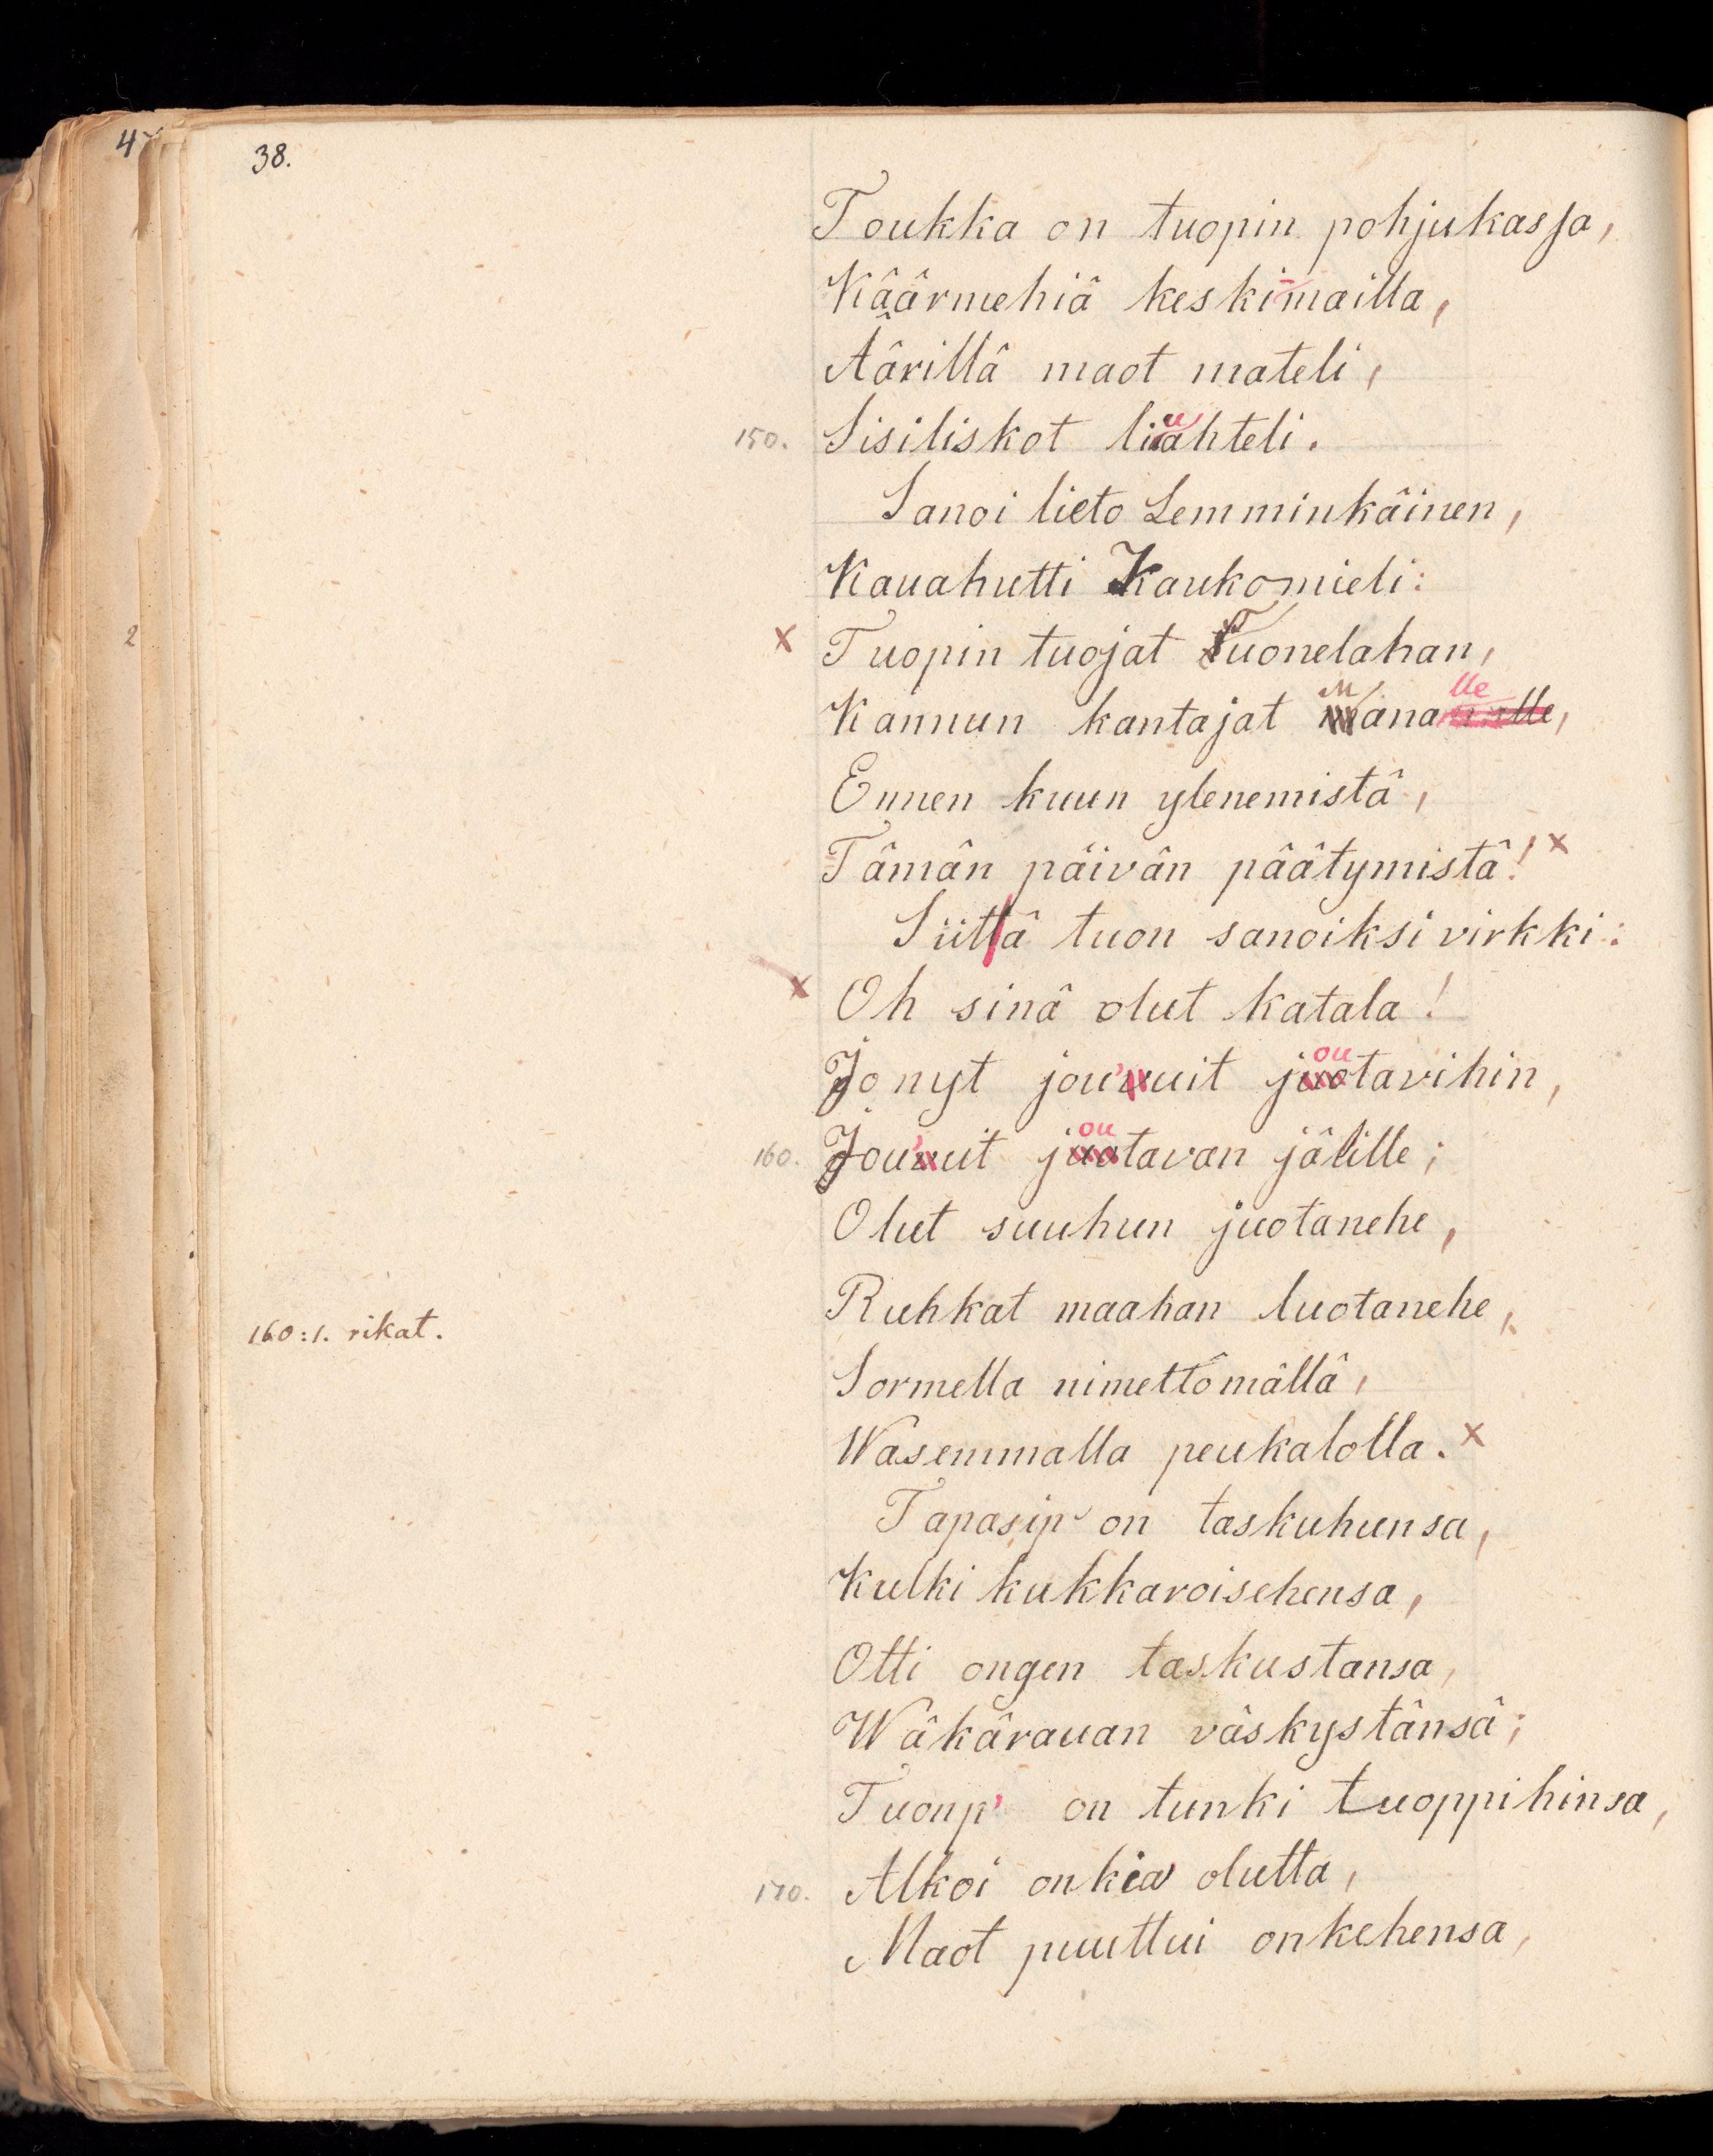 38.
Toukka on tuopin pohjukassa,
Käärmehiä keski-mailla,
Äärillä maot mateli,
150. Sisiliskot liuahteli.
Sanoi lieto Lemminkäinen,
Kauahutti Kaukomieli:
x Tuopin tuojat Tuonelahan,
Kannun kantajat Manalle,
Ennen kuun ylenemistä,
Tämän päivän päätymistä! x
Siitä tuon sanoiksi virkki:
x Oh sinä olut katala!
Jo nyt jou'uit joutavihin,
160. Jou'uit joutavan jälille;
Olut suuhun juotanehe,
Ruhkat maahan luotanehe,
160:1. rikat.
Sormella nimettömällä,
Wasemmalla peukalolla. x
Tapasip' on taskuhunsa,
Kulki kukkaroisehensa,
Otti ongen taskustansa,
Wäkärauan väskystänsä;
Tuonp' on tunki tuoppihinsa,
170. Alkoi onkia olutta,
Maot puuttui onkehensa,